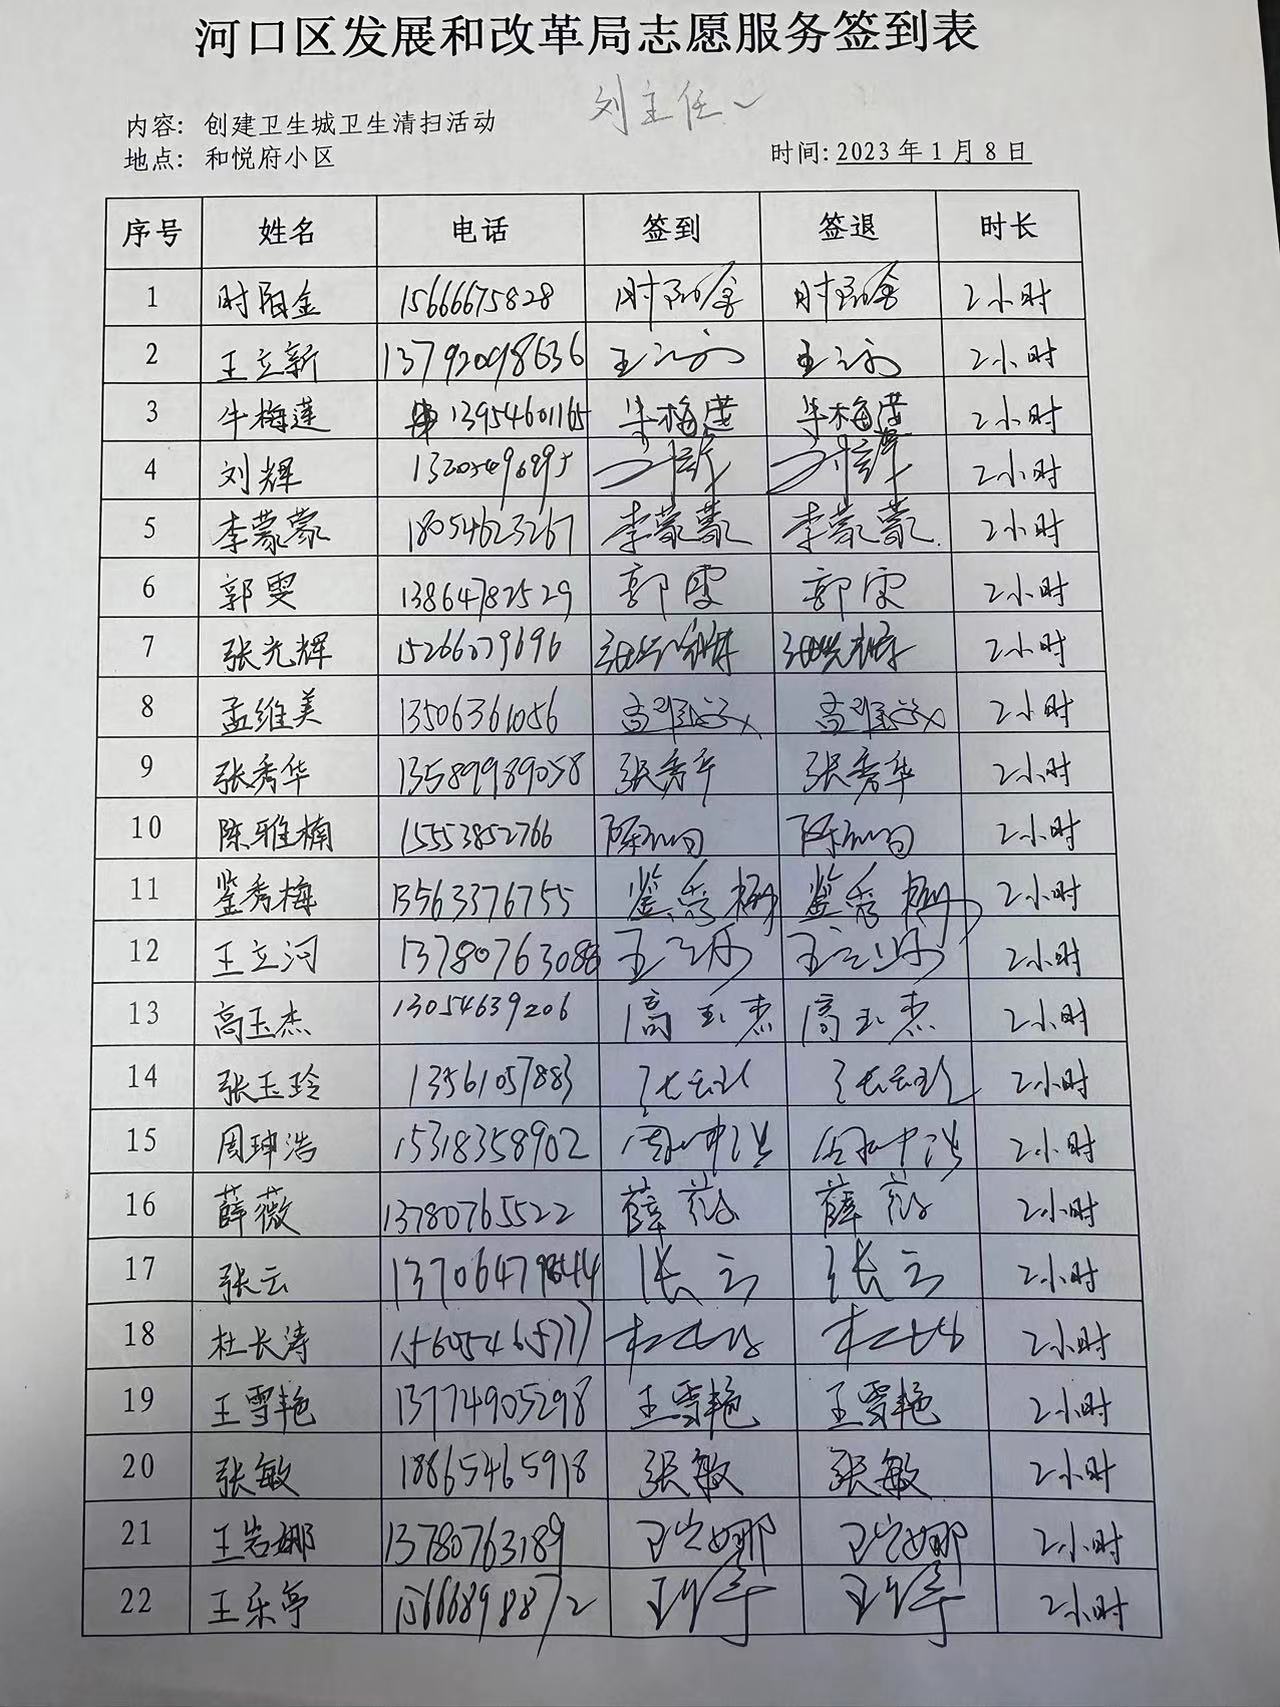 河口区发展和改革局志愿服务签到表
刘主任
内容：创建卫生城卫生清扫活动
地点：和悦府小区
时间：2023年1月8日
序号 姓名 电话 签到 签退 时长
1 时阳金 15666675828 时阳金 时阳金 2小时
2 王立新 13792098636 王立新 王立新 2小时
3 牛梅莲 13954601165 牛梅莲 牛梅莲 2小时
4 刘辉 刘辉 刘辉 2小时
5 李蒙蒙 18054623267 李蒙蒙 李蒙蒙 2小时
6 郭雯 13864782529 郭雯 郭雯 2小时
7 张光辉 15266079696 张光辉 张光辉 2小时
8 孟维美 13506361056 孟维美 孟维美 2小时
9 张秀华 13589989058 张秀华 张秀华 2小时
10 陈雅楠 15553852766 2小时
11 綦秀梅 13563376755 綦秀梅 綦秀梅 2小时
12 王立河 13780763088 王立河 王立河 2小时
13 高玉杰 13054639206 高玉杰 高玉杰 2小时
14 张玉玲 13561057883 张玉玲 张玉玲 2小时
15 周珅浩 15318358902 周珅浩 周珅浩 2小时
16 薛薇 13780765522 薛薇 薛薇 2小时
17 张云 张云 张云 2小时
18 杜长涛 15605465777 杜长涛 杜长涛 2小时
19 王雪艳 13774905298 王雪艳 王雪艳 2小时
20 张敏 18865465918 张敏 张敏 2小时
21 王岩娜 13780763189 王岩娜 王岩娜 2小时
22 王乐亭 15666898872 王乐亭 王乐亭 2小时